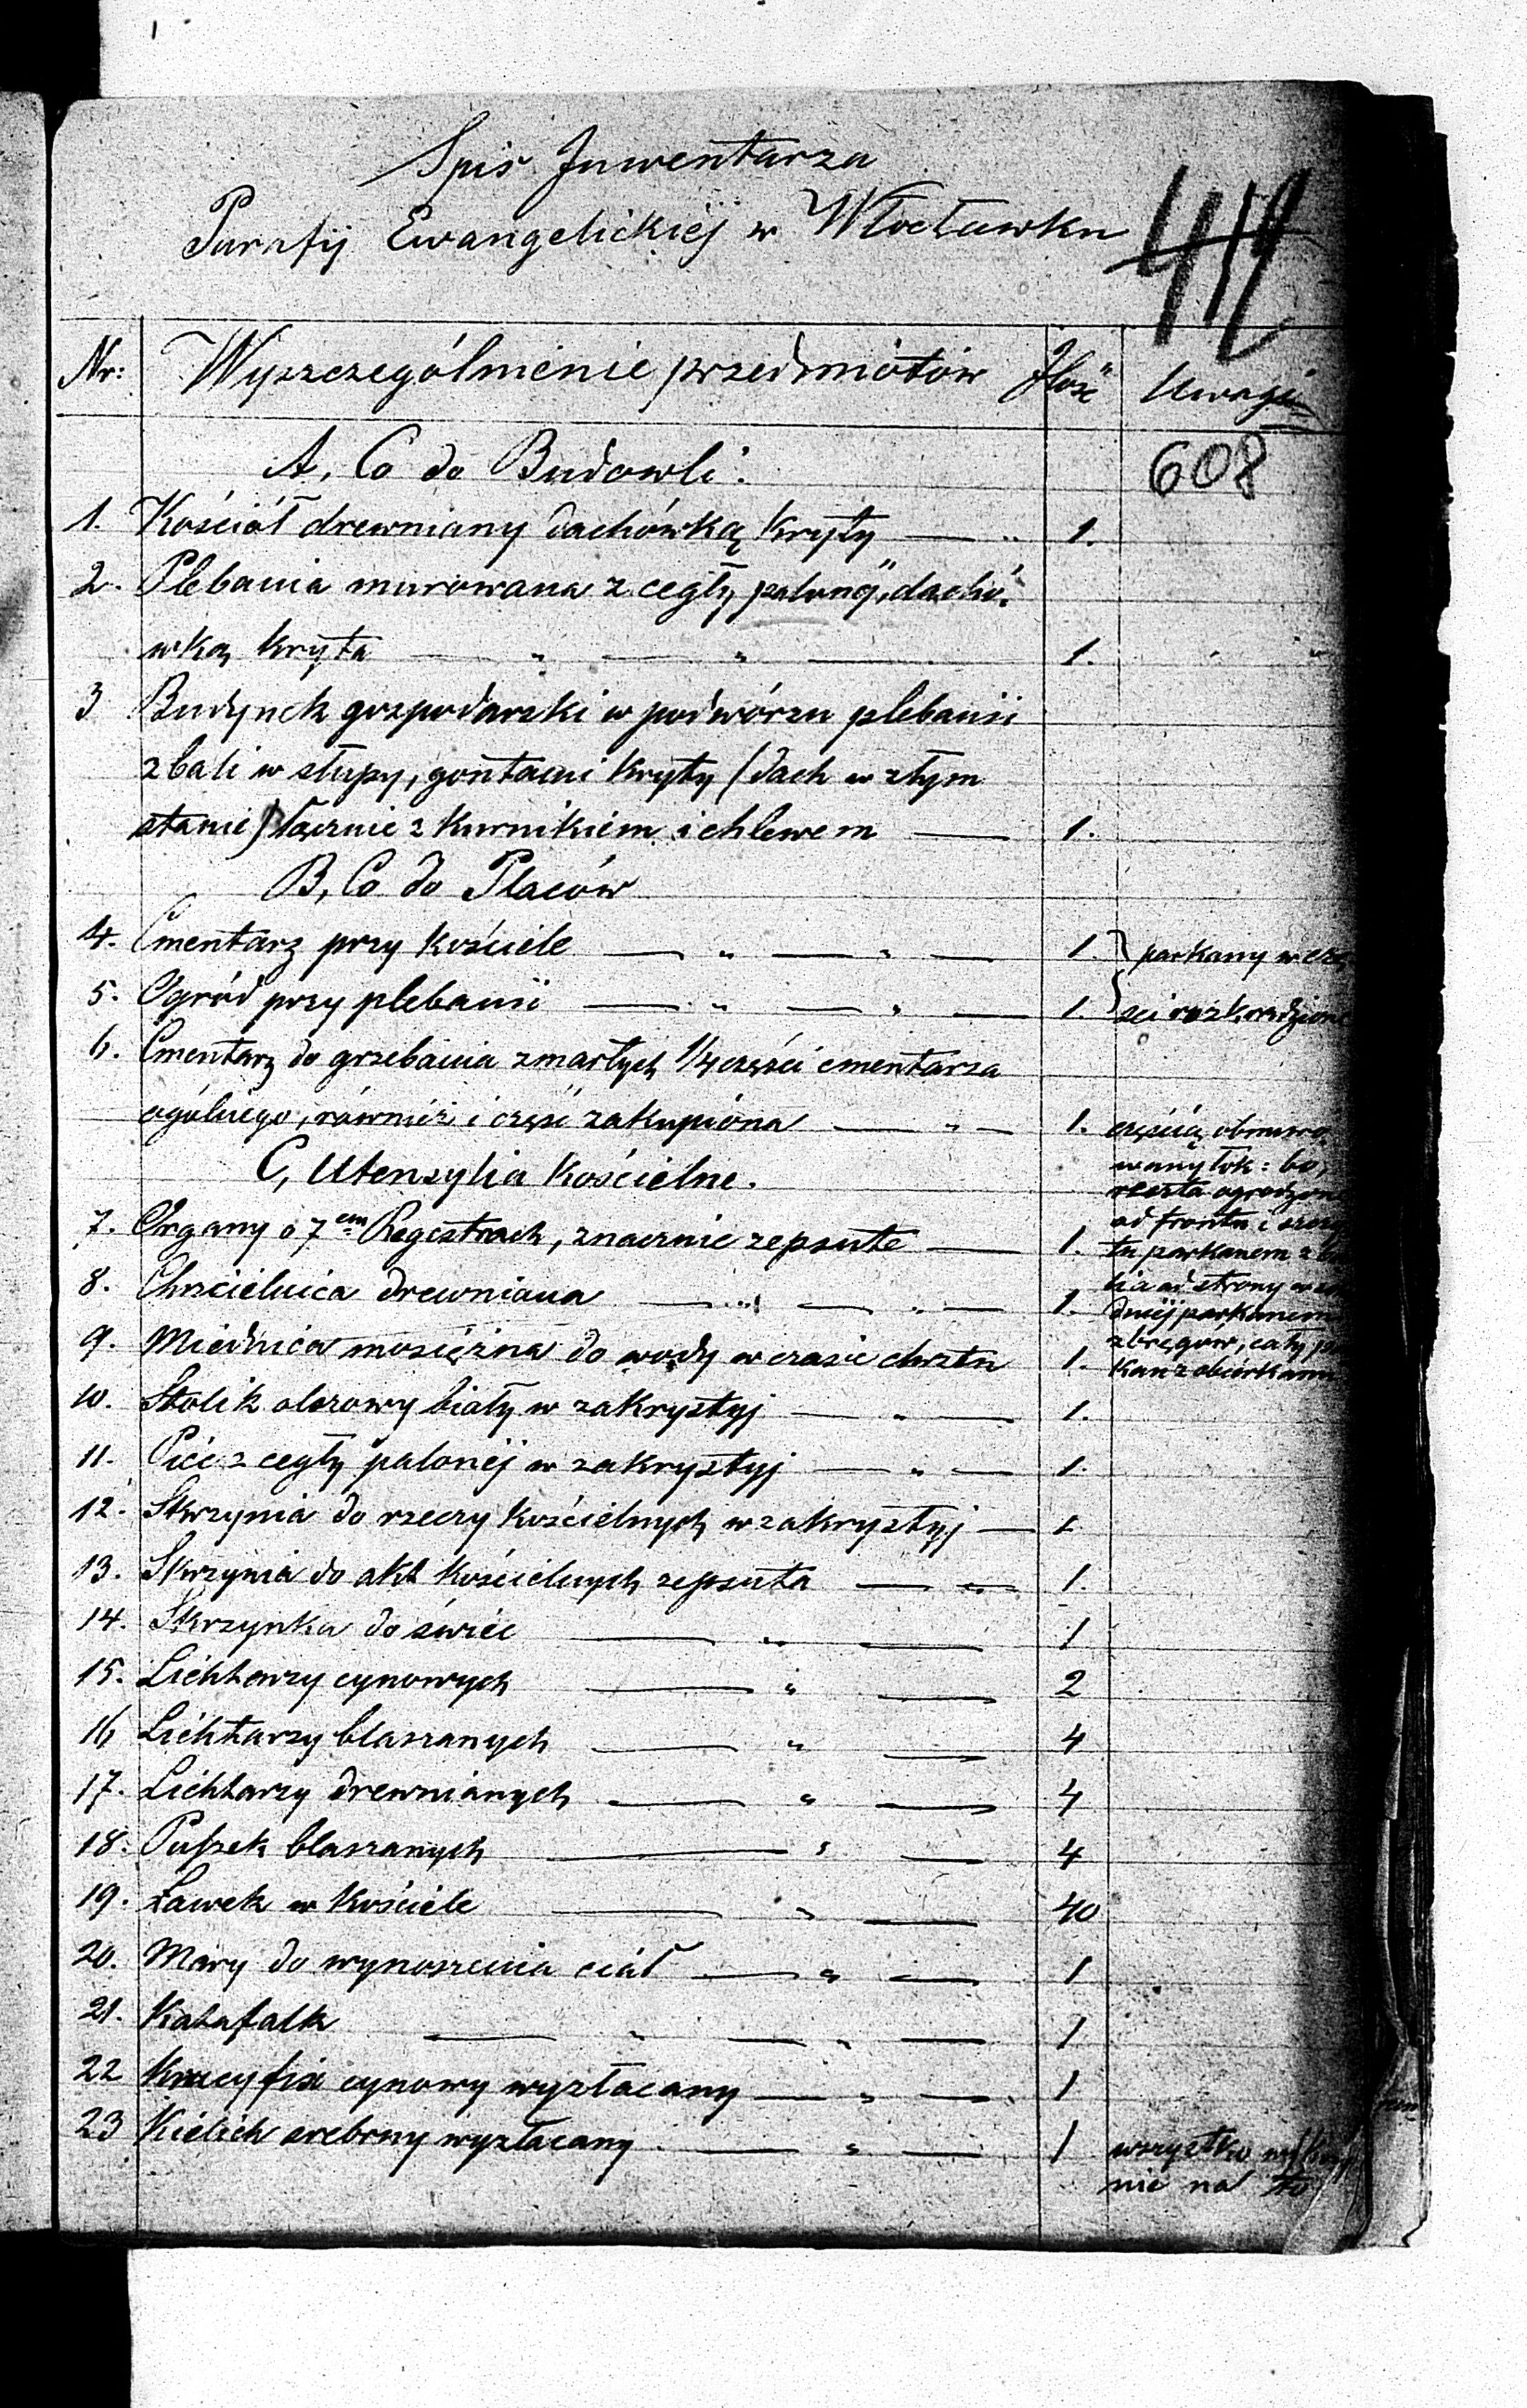 Spis Inwentarza
Parafij Ewangelickiej w Włocławku
412
Nr: Wyszczególnienie przedmiotów Ilość Uwagi
608
A, Co do Budowli.
1. Kościół drewniany dachówką kryty — „ 1.
2. Plebania murowana z cegły palonej, dachó-
wką kryta — „ — „ — 1.
3 Budynek gospodarski w podwórzu plebanii
z bali w słupy, gontami kryty (dach w złym
stanie) łącznie z kurnikiem i chlewem — 1.
B, Co do Placów
4. Cmentarz przy kościele — „ — „ — 1. parkany w czę
5. Ogród przy plebanii — „ — „ — 1. sci rozkradzione
6. Cmentarz do grzebania zmarłych 1/4 części cmentarza
ogólnego, również i część zakupiona — „ — 1. częścią obmuro
wany
C, Utensylia kościelne.
reszta ogrodzon
od frontu i
7. Organy o 7em Registrach, znacznie zepsute — 1.
tu parkanem z
8. Chrzcielnica drewniana — „ — „ — 1.
od strony
parkanem
9. Miednica mosiężna do wody w czasie chrztu 1.
cały
10. Stolik olszowy biały w zakrystyj — „ — 1.
11. Piec z cegły palonej w zakrystyj — „ — 1.
12. Skrzynia do rzeczy kościelnych w zakrystyj — 1
13. Skrzynia do akt kościelnych zepsuta — „ — 1.
14. Skrzynka do świec — „ — 1
15. Lichtarzy cynowych — „ — 2
16 Lichtarzy blaszanych — „ — 4
17. Lichtarzy drewnianych — „ — 4
18. Puszek blaszanych — „ — 4
19. Ławek w kościele — „ — 40
20. Mary do wynoszenia ciał — „ — 1
21. Katafalk — „ — „ — 1
22 Krucyfix cynowy wyzłacany — „ — 1
23 Kielich srebrny wyzłacany — „ — 1 wszystko
nie na to